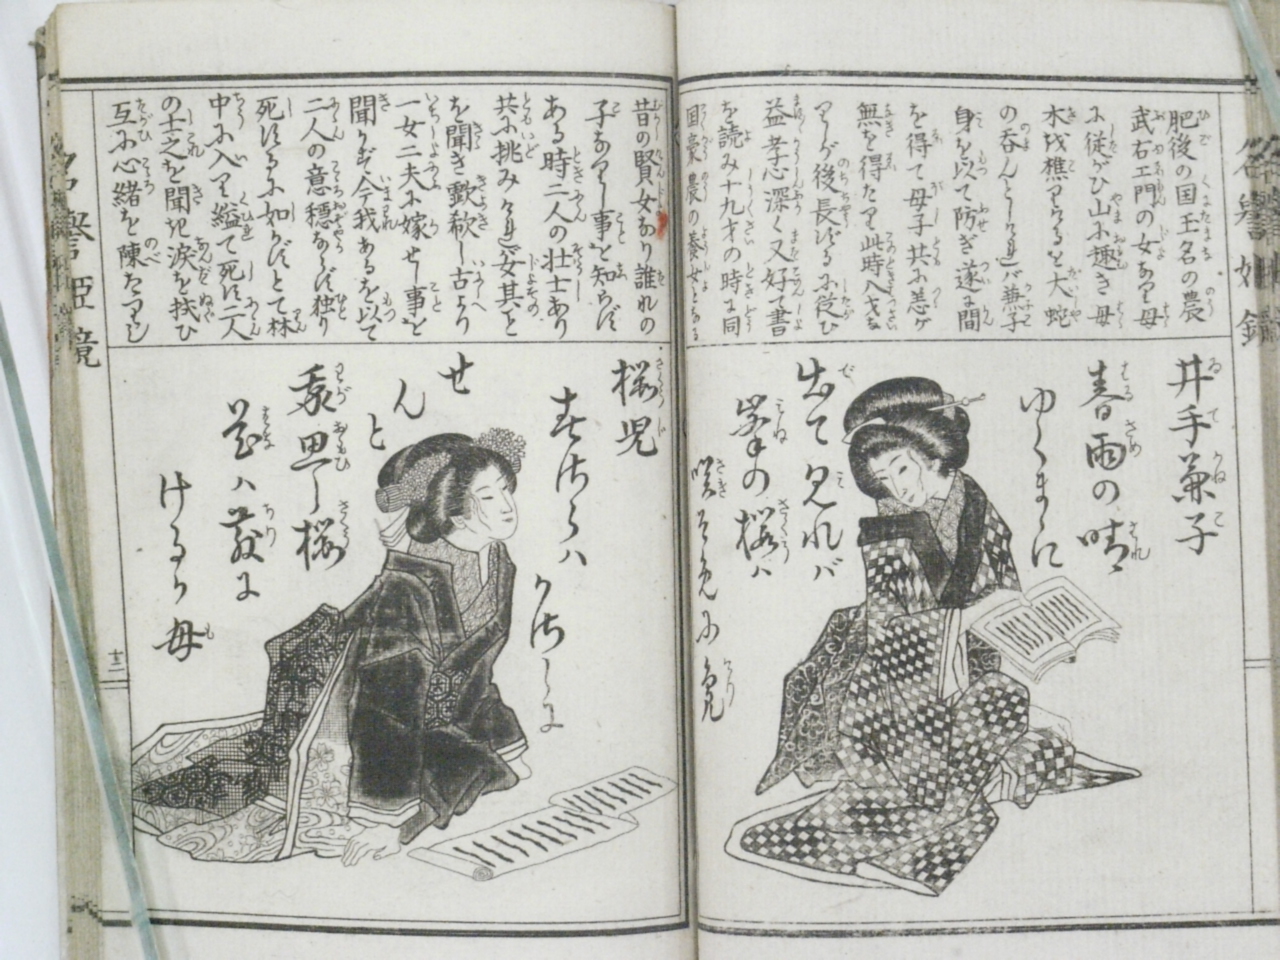 肥後の国玉名の農
武右エ門の女あり母
に従がひ山に趣き母
木を樵りけるを大蛇
の呑んとしければ兼子
身を以て防ぎ遂に間
を得て母子共に恙が
無を得たり此時八才な
りしが後長ずるに従ひ
益孝心深く又好て書
を読み十九才の時に同
国豪農の養女となる
井手兼子
春雨の晴
ゆくまに
出て見れバ
峯の桜ハ
咲そめにけり
昔の賢女なり誰れの
子なりし事を知らず
ある時二人の壮士あり
共に挑みければ女其を
を聞き歔欷し古より
一女二夫に嫁せし事を
聞かず今我あるを以て
二人の意穏ならず独り
死するに如かずとて林
中に入り縊て死す二人
の士之を聞き涙を拭ひ
互に心緒を陳たりし
桜児
春さらハ
かさしに
せ
んと
我思し桜
花ハ散に
けるか母
名誉姫鏡
十二